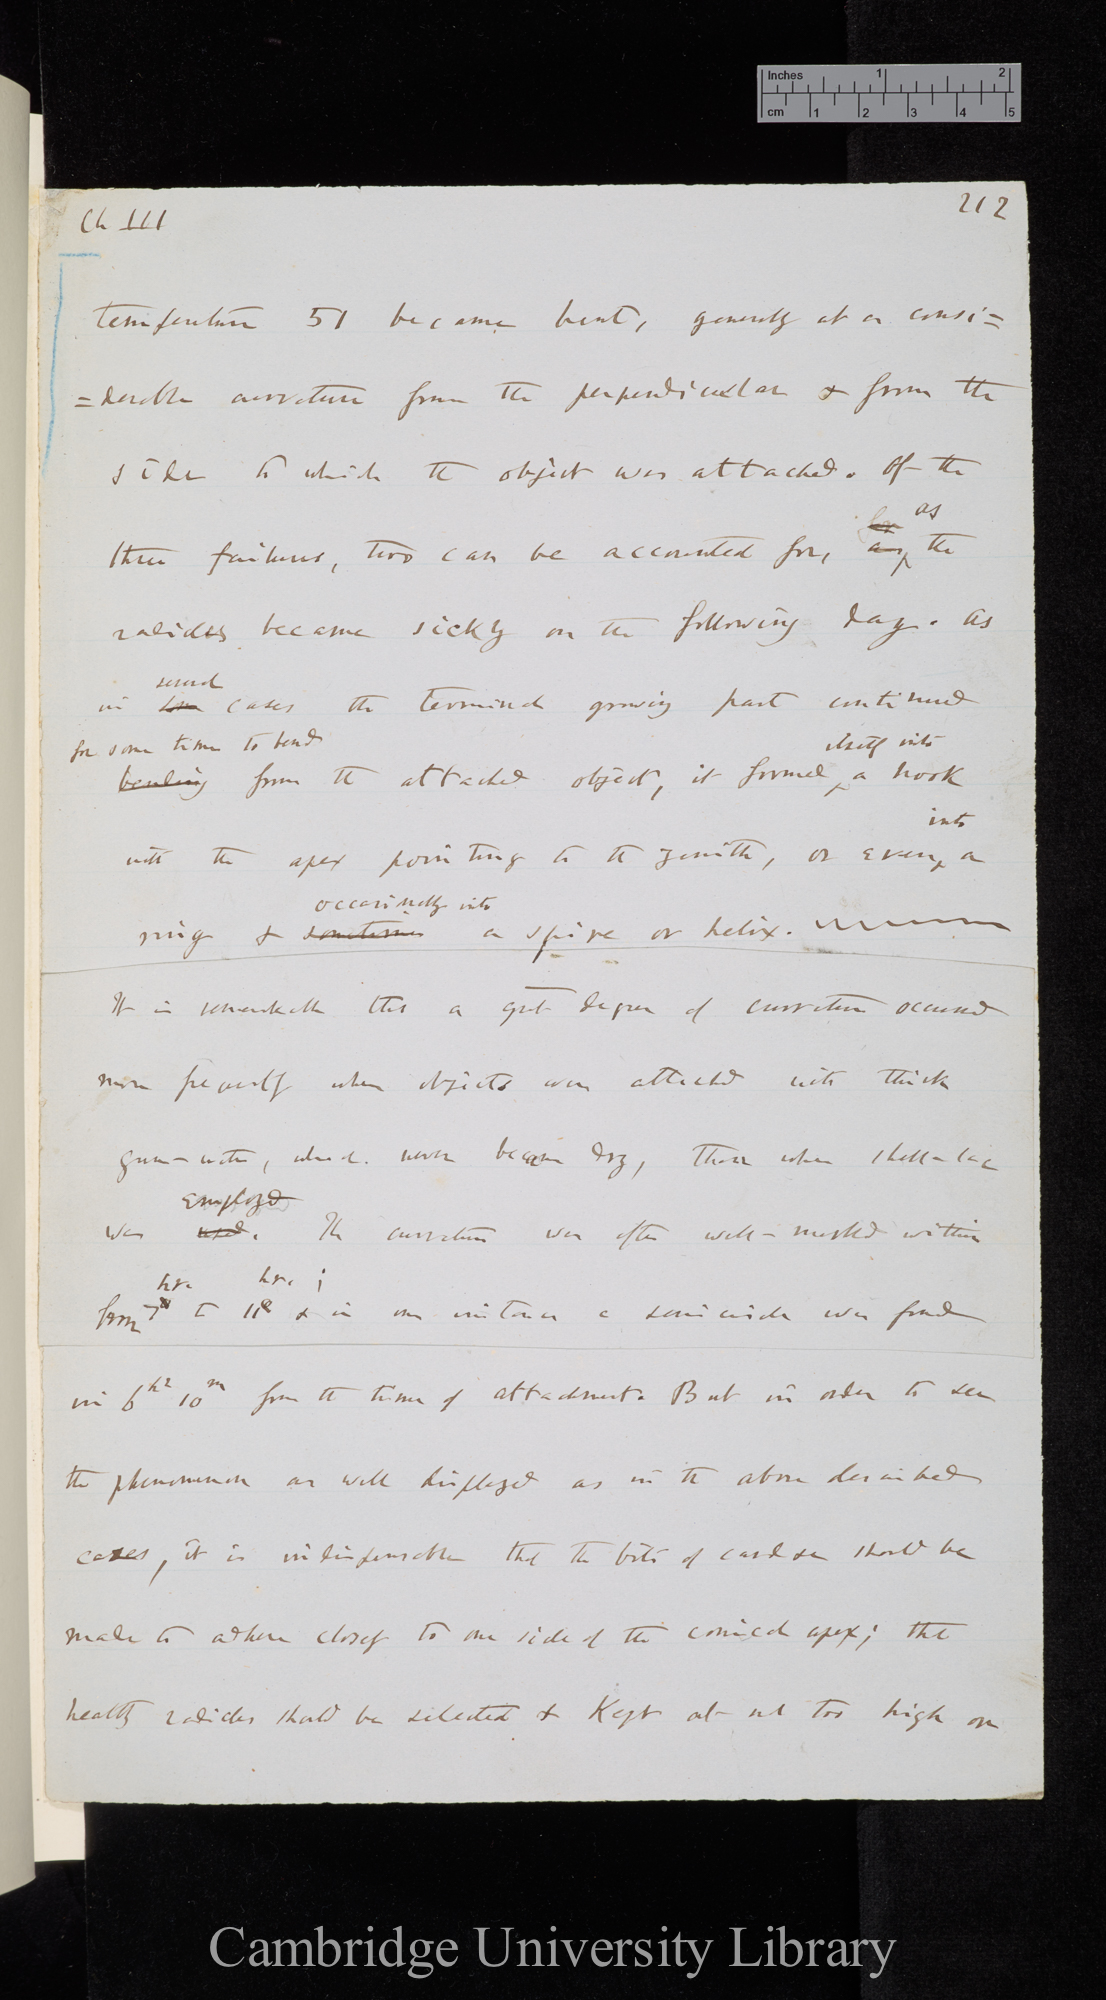 Inches 1 2
cm 1 2 3 4 5
Ch III 212
temperature 51 became bent, generally at a consi=
=derable curvature from the perpendicular & from the
side to which the object was attached. Of the
as
three failures, two can be accounted for, as the
radicles became sickly on the following day. As
several
in some cases the terminal growing part continued
for some time to bend itself into
bending from the attached object, it formed a hook
into
with the apex pointing to the zenith, or even a
occasionally into
ring & sometimes a spire or helix.
It is remarkable that a great degree of curvature occurred
more frequently when objects were attached with thick
gum-water, which never became dry, than when shell-lac
employed
was used. The curvature was often well-marked within
hrs. hrs. ;
from 7 to 11 & in one instance a semicircle was formed
in 6 hr 10 m from the time of attachment. But in order to see
the phenomenon as well displayed as in the above described
cases, it is indispensable that the bits of card &c should be
made to adhere closely to one side of the conical apex; that
healthy radicles should be selected & kept at not too high or
Cambridge University Library